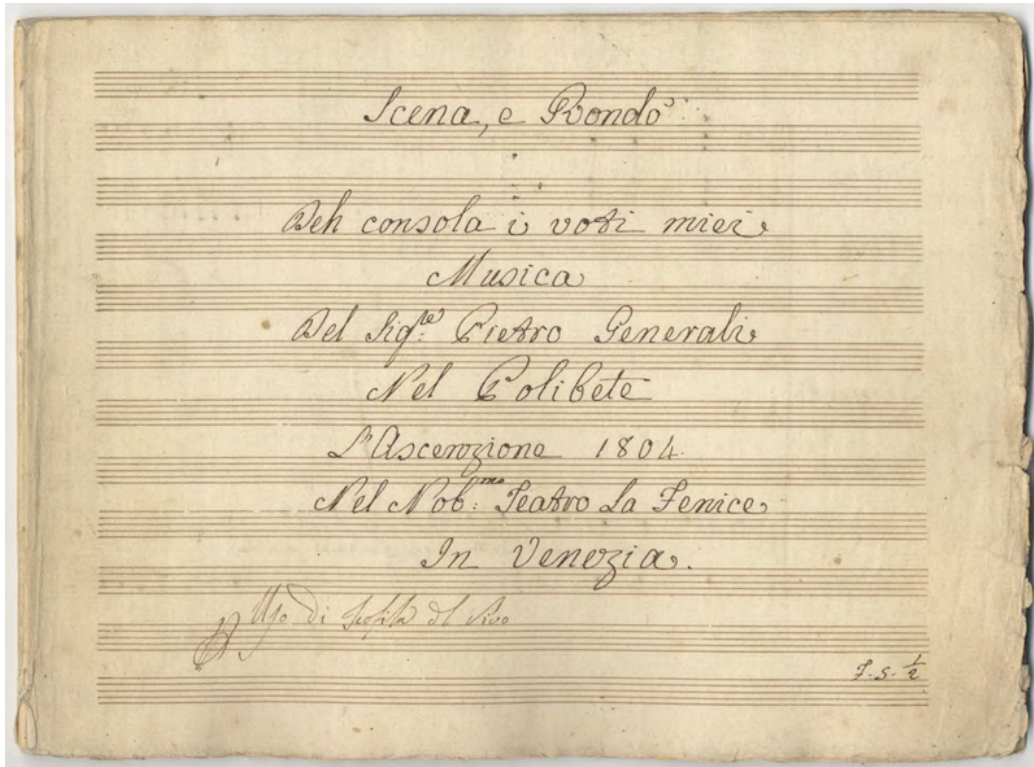 Scena, e Rondò
Deh consola i voti miei
Musica
Del Sig:re Pietro Generali
Nel Polibete
L'Ascenzione 1804.
Nel Nob:mo Teatro La Fenice
In Venezia.
Uso di
F. S. 1/2